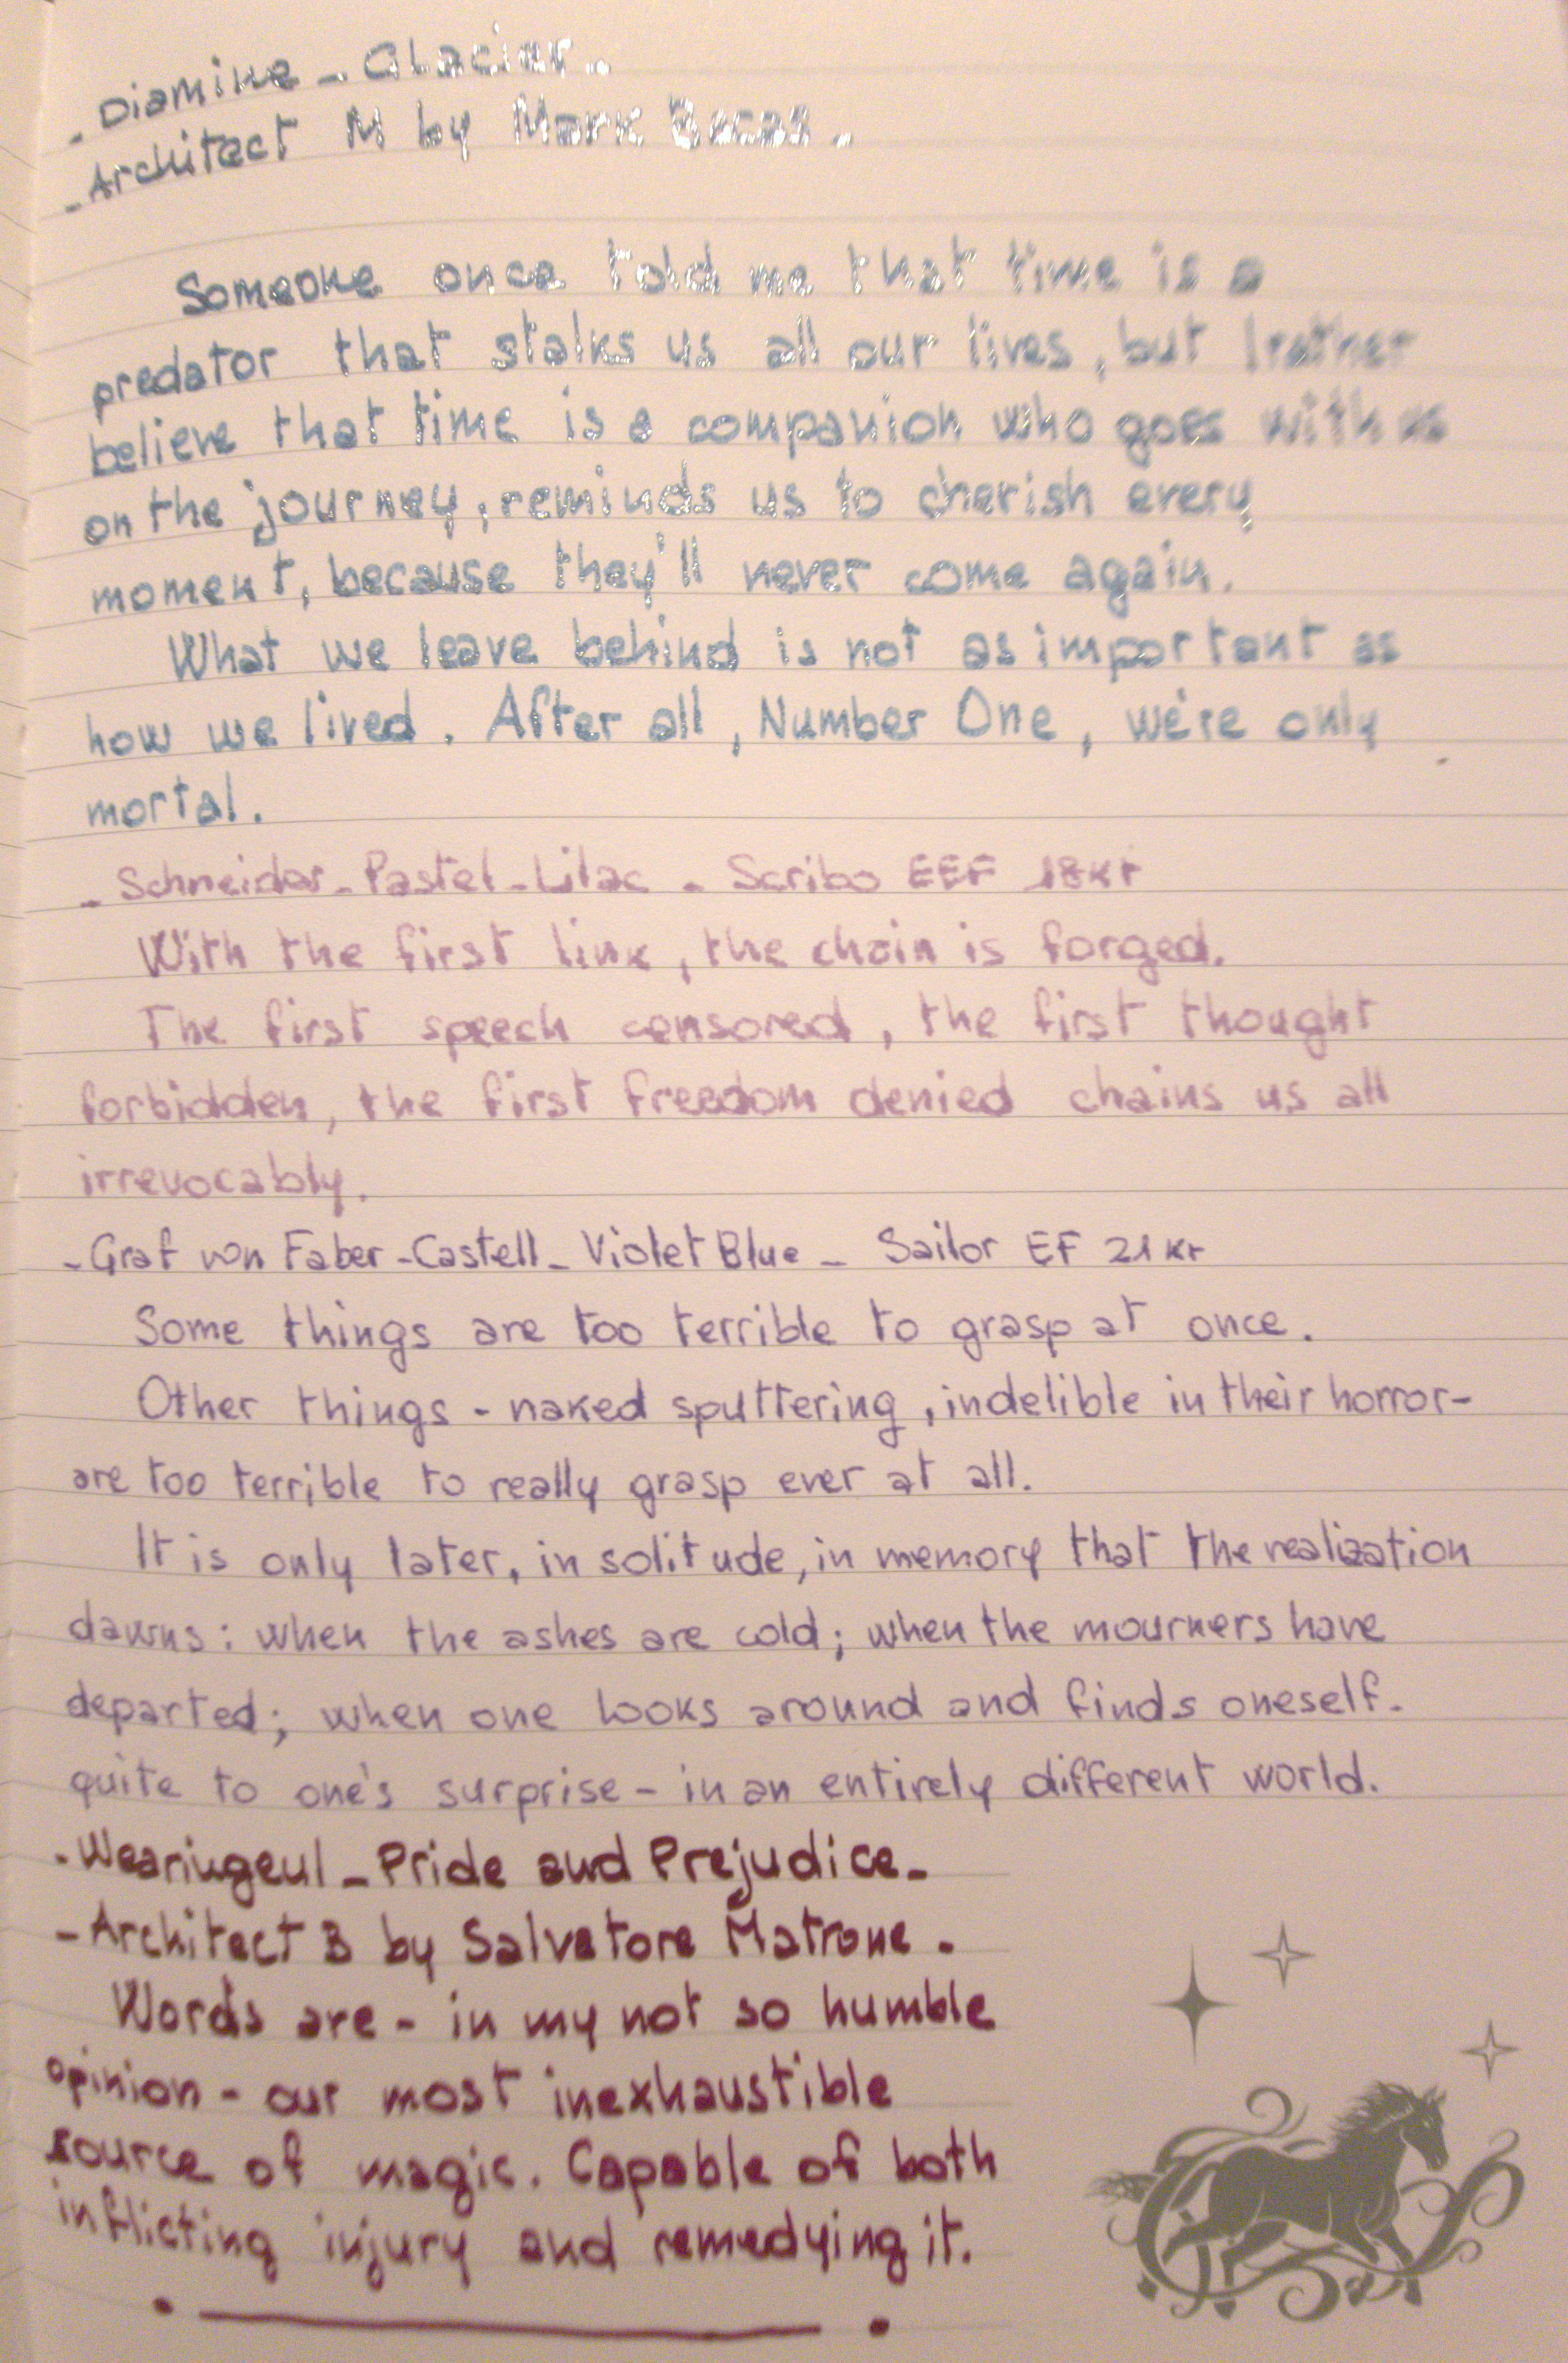 - Diamine - Glacier.
- Architect M by Mark Bacas.
Someone once told me that time is a
predator that stalks us all our lives, but I rather
believe that time is a companion who goes with us
on the journey, reminds us to cherish every
moment, because they'll never come again.
What we leave behind is not as important as
how we lived. After all, Number One, we're only
mortal.
- Schneider - Pastel - Lilac - Scribo EEF 18Kt
With the first link, the chain is forged.
The first speech censored, the first thought
forbidden, the first freedom denied chains us all
irrevocably.
- Graf von Faber-Castell - Violet Blue - Sailor EF 21 Kt
Some things are too terrible to grasp at once.
Other things - naked sputtering, indelible in their horror-
are too terrible to really grasp ever at all.
It is only later, in solitude, in memory that the realization
dawns: when the ashes are cold; when the mourners have
departed; when one looks around and finds oneself-
quite to one's surprise - in an entirely different world.
- Wearingeul - Pride and Prejudice -
- Architect B by Salvatore Matrone.
Words are - in my not so humble
opinion - our most inexhaustible
source of magic. Capable of both
inflicting injury and remedying it.